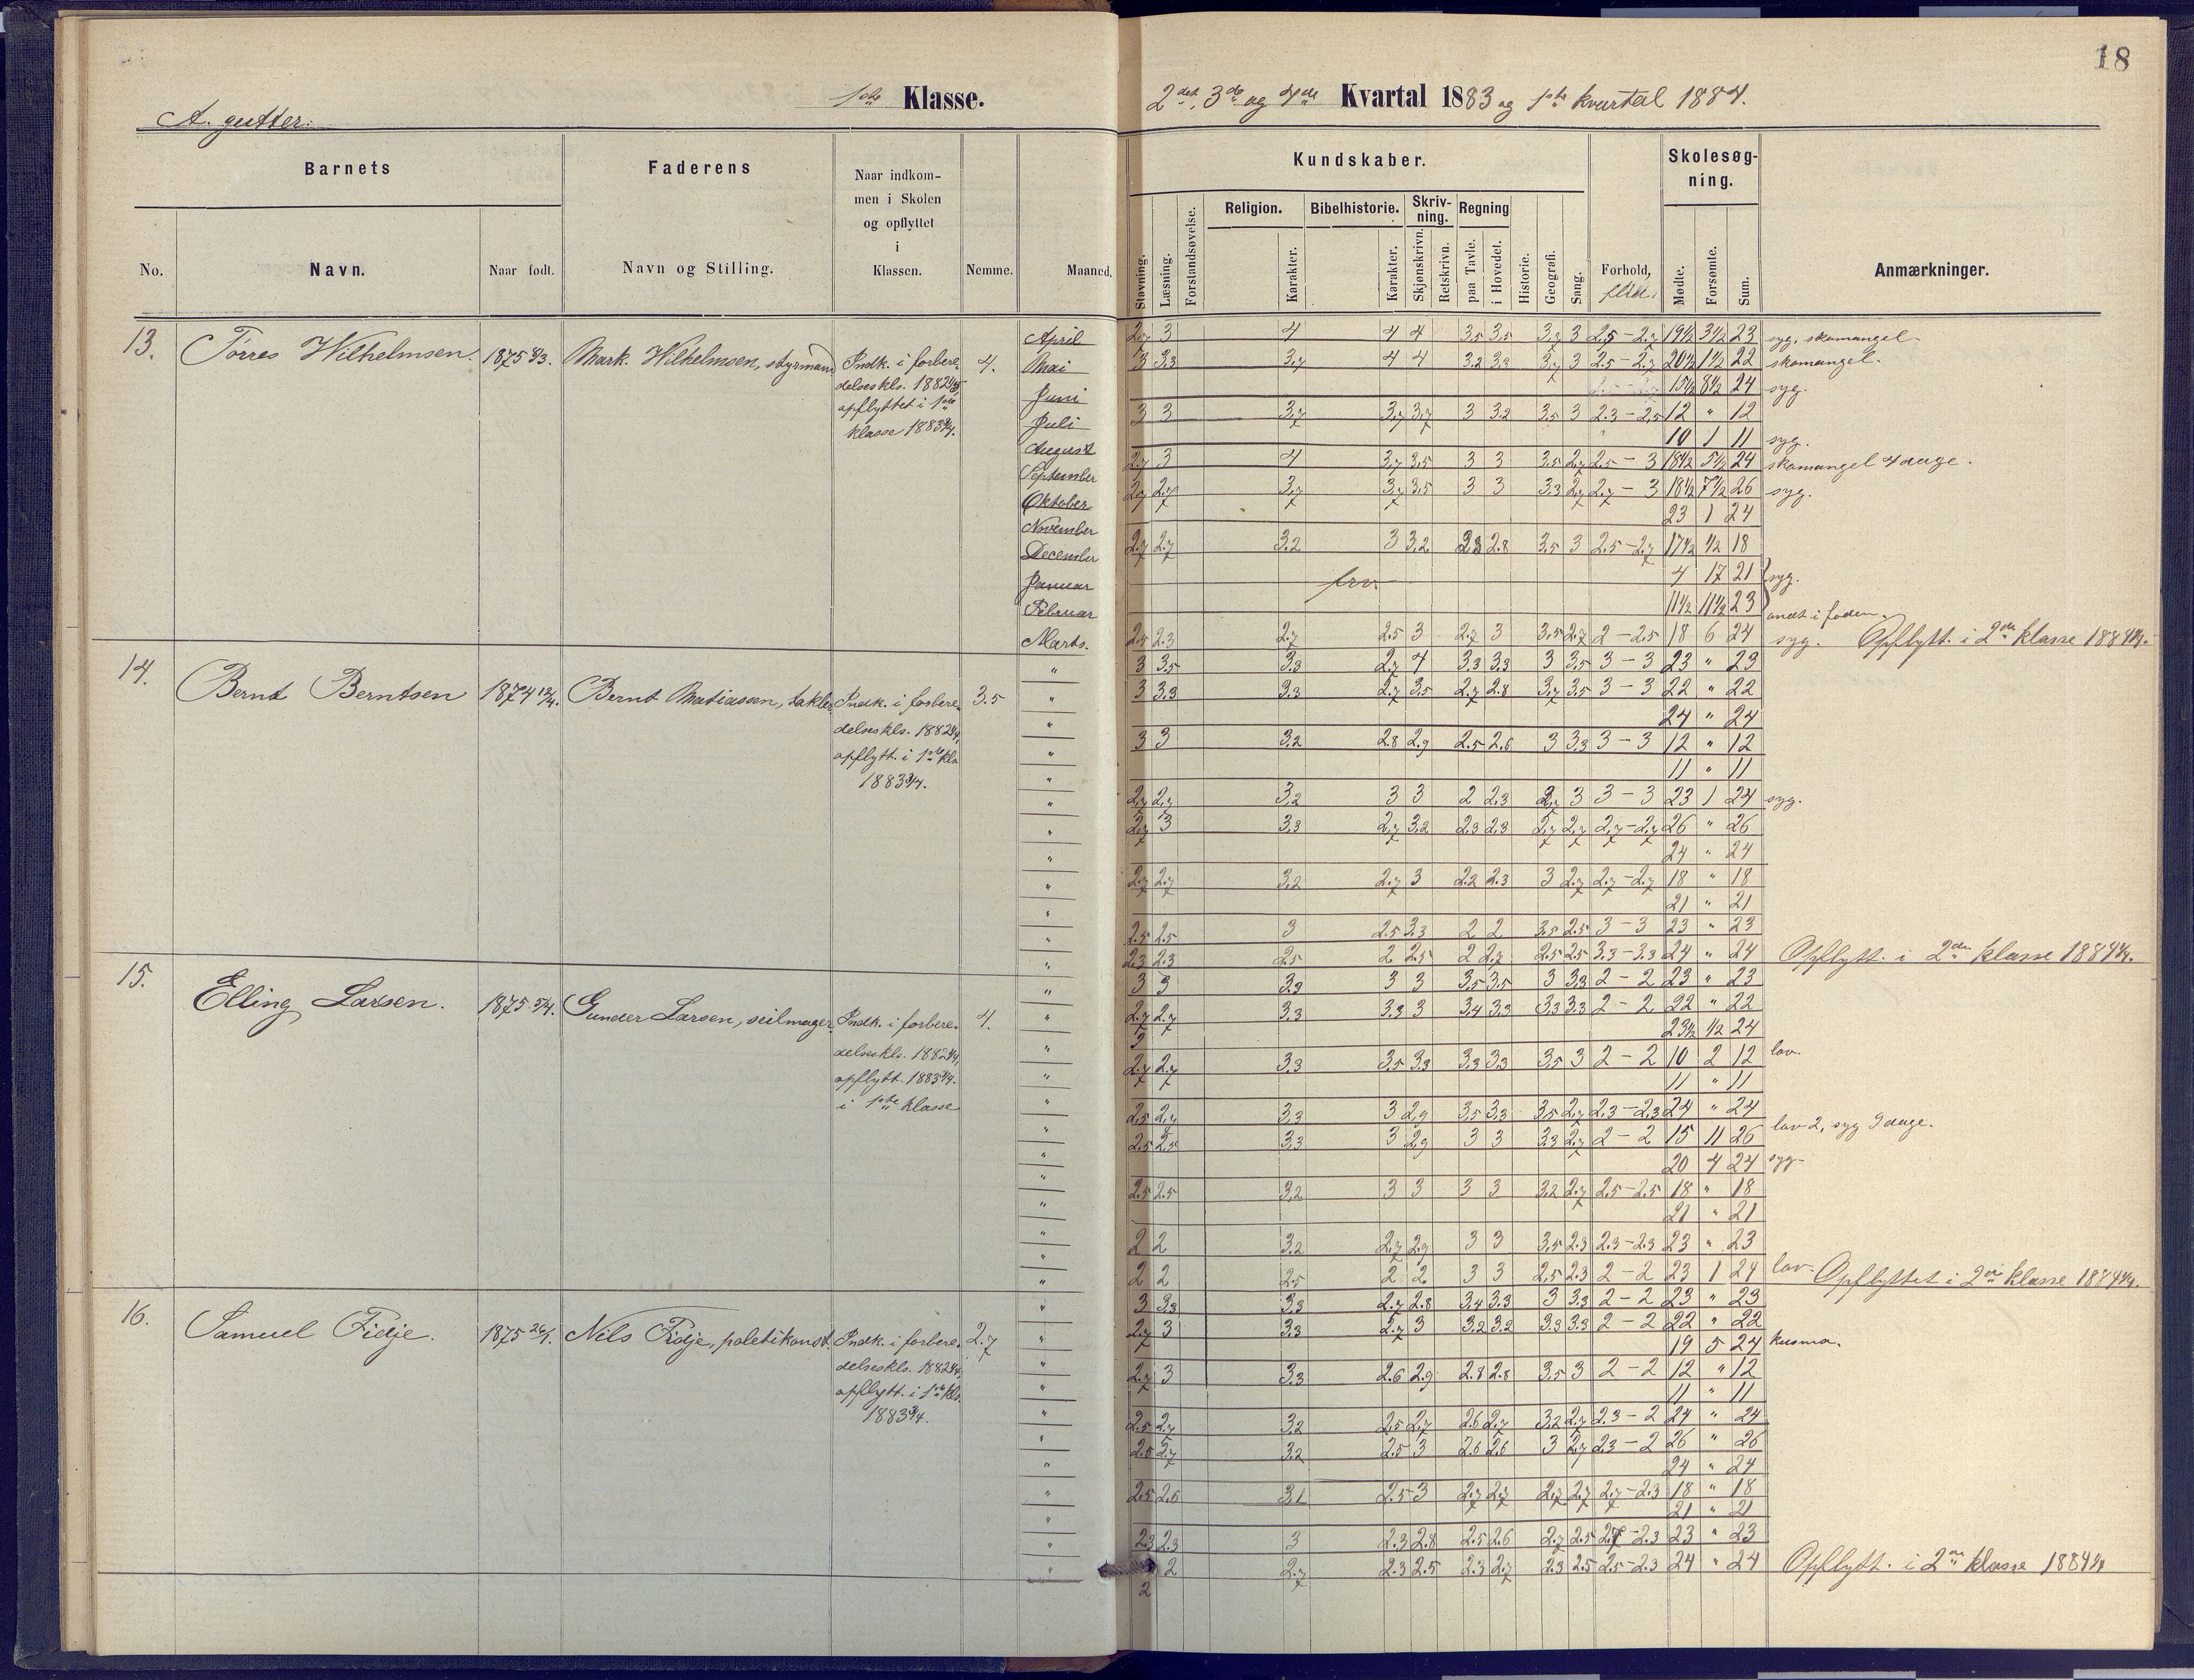 18
1ste Klasse.
2det, 3de og 4de Kvartal 1883 og 1ste kvartal 1884.
A. gutter:
Barnets
Faderens
Naar indkommen i Skolen og opflyttet i Klassen.
No.
Navn.
Naar født.
Navn og Stilling.
Nemme.
Maaned.
Kundskaber.
Slavning.
Læsning.
Forstandsøvelse.
Religion.
Karakter.
Bibelhistorie.
Karakter.
Skrivning.
Skjønskrivn.
Retskrivn.
Regning
paa Tavle.
i Hovedet.
Historie.
Geografi.
Sang.
Forhold, flid.
Skolesøgning.
Mødte.
Forsømte.
Sum.
Anmærkninger.
13. Tørres Wilhelmsen. 1875 Mark. Wilhelmsen, styrmand Indk. i forbere- 4.
delseskls. 1882
opflyttet i 1ste
klasse 1883
April 2.7 3 4 4 4 3.5 3.5 3.7 3 2.5 - 2.7 19½ 3½ 23 syg, skomangel
Mai 3 3.3 3.7 4 4 3.2 3.3 3.7 3 2.5 - 2.7 20½ 1½ 22 skomangel.
Juni 15½ 8½ 24 syg.
Juli 3 3 3.7 3.7 3.7 3 3.2 3.5 3 2.3 - 2.5 12 " 12
August 10 1 11 syg.
September 2.7 3 4 3.7 3.5 3 3 3.5 2.7 2.5 - 3 18½ 5½ 24 skomangel 4 dage.
Oktober 2.7 2.7 3.7 3.7 3.5 3 3 3.3 2.7 2.7 - 3 18½ 7½ 26 syg.
November 23 1 24
December 2.7 2.7 3.2 3 3.2 2.8 2.8 3.5 3 2.5 - 2.7 17½ ½ 18
Januar frv. 4 17 21 syg.
Februar 11½ 11½ 23 ondt i foden.
Marts. 2.5 2.3 2.7 2.5 3 2.7 3 3.5 2.7 2 - 2.5 18 6 24 syg. Opflytt. i 2den klasse 1884
14. Bernt Berntsen 1874 Bernt Matiassen, takler Indk. i forbere- 3.5
delseskls. 1882
opflytt. i 1ste kls
1883
" 3 3.5 3.3 2.7 4 3.3 3.3 3 3.5 3 - 3 23 " 23
" 3 3.3 3.3 2.7 3.5 2.7 2.8 3.7 3.5 3 - 3 22 " 22
" 24 " 24
" 3 3 3.2 2.8 2.9 2.5 2.6 3 3.3 3 - 3 12 " 12
" 11 " 11
" 2.7 2.7 3.2 3 3 2 2.3 2.7 3 3 - 3 23 1 24 syg.
" 2.7 3 3.3 2.7 3.2 2.3 2.3 2.7 2.7 2.7 - 2.7 26 " 26
" 24 " 24
" 2.7 2.7 3.2 2.7 3 2.2 2.3 3 2.7 2.7 - 2.7 18 " 18
" 21 " 21
" 2.5 2.5 3 2.5 3.3 2 2 3.5 2.5 3 - 3 23 " 23
" 2.3 2.3 2.5 2 2.5 2 2.7 2.5 2.5 3.3 - 3.3 24 " 24 Opflytt. i 2den klasse 1884
15. Elling Larsen. 1875 Gunder Larsen, seilmager. Indk. i forbere- 4.
delseskls. 1882
opflytt. 1883
i 1ste klasse
" 3 3 3.3 3 3 3.5 3.5 3 3.3 2 - 2 23 " 23
" 2.7 2.7 3.3 3.3 3 3.4 3.3 3.3 3.3 2 - 2 22 " 22
" 23½ ½ 24
" 2.7 2.7 3.3 3.5 3.3 3.3 3.3 3.5 3 2 - 2 10 2 12 lov.
" 11 " 11
" 2.5 2.7 3.3 3 2.9 3.5 3.3 3.5 2.7 2.3 - 2.3 24 " 24
" 2.5 2.5 3.3 3 2.9 3 3 3.3 2.7 2 - 2 15 11 26 lov 2, syg 9 dage.
" 20 4 24 syg
" 2.5 2.5 3.2 3 3 3 3 3.2 2.7 2.5 - 2.5 18 " 18
" 21 " 21
" 2 2 3.2 2.7 2.9 3 3 3.5 2.3 2.3 - 2.3 23 " 23
" 2 2 2.5 2 2 3 3 2.5 2.3 2 - 2 23 1 24 lov. Opflyttet i 2den klasse 1884
16. Samuel Fidje. 1875 26/1. Nels Fidje, poletikonst. Indk. i forbere- 2.7
delseskls. 1882
opflytt. i 1ste kls.
1883
" 3 3.3 3.3 2.7 2.8 3.4 3.3 3 3.3 2 - 2 23 " 23
" 2.7 3 3.3 2.7 3 3.2 3.2 3.3 3.3 2 - 2 22 " 22
" 19 5 24 kusma.
" 2.7 3 3.3 2.6 2.9 2.8 2.8 3.5 3 2 - 2 12 " 12
" 11 " 11
" 2.5 2.7 3.2 2.5 2.7 2.6 2.7 3.2 2.7 2.3 - 2 24 " 24
" 2.5 2.7 3.2 2.5 3 2.6 2.6 3 2.7 2.3 - 2 26 " 26
" 24 " 24
" 2.5 2.6 3.1 2.5 3 2.7 2.7 2.7 2.7 2.7 - 2.3 18 " 18
" 21 " 21
" 2.3 2.3 3 2.3 2.8 2.5 2.6 2.7 2.5 2.7 - 2.3 23 " 23
" 2 2 2.7 2.3 2.5 2.3 2.7 2.3 2.5 2.5 - 2.3 24 " 24 Opflytt. i 2den klasse 1884